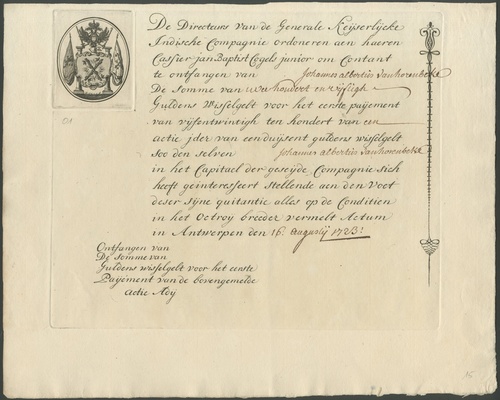 De Directeurs van de Generale Keyserlijcke
Indische Compagnie ordoneren aen haeren
Cassier jan Baptist Cogels junior om Contant
te ontfangen van Johannes albertus vanhorenbeke
De Somme van twee hondert en vijftigh
Guldens Wisselgelt voor het eerste payement
van vyfentwintigh ten hondert van een
actie jder van eenduijsent guldens wisselgelt
soo den selven Johannes albertus vanhorenbeke
in het Capitael der geseyde Compagnie sich
heeft geinteresseert Stellende aen den Voet
deser sijne quitantie alles op de Conditien
in het Octroy breeder vermelt Actum
in Antwerpen den 16. augustij 1723:
Ontfangen van
De Somme van
Guldens wisselgelt voor het eerste
Payement van de bovengemelde
actie Ady
15